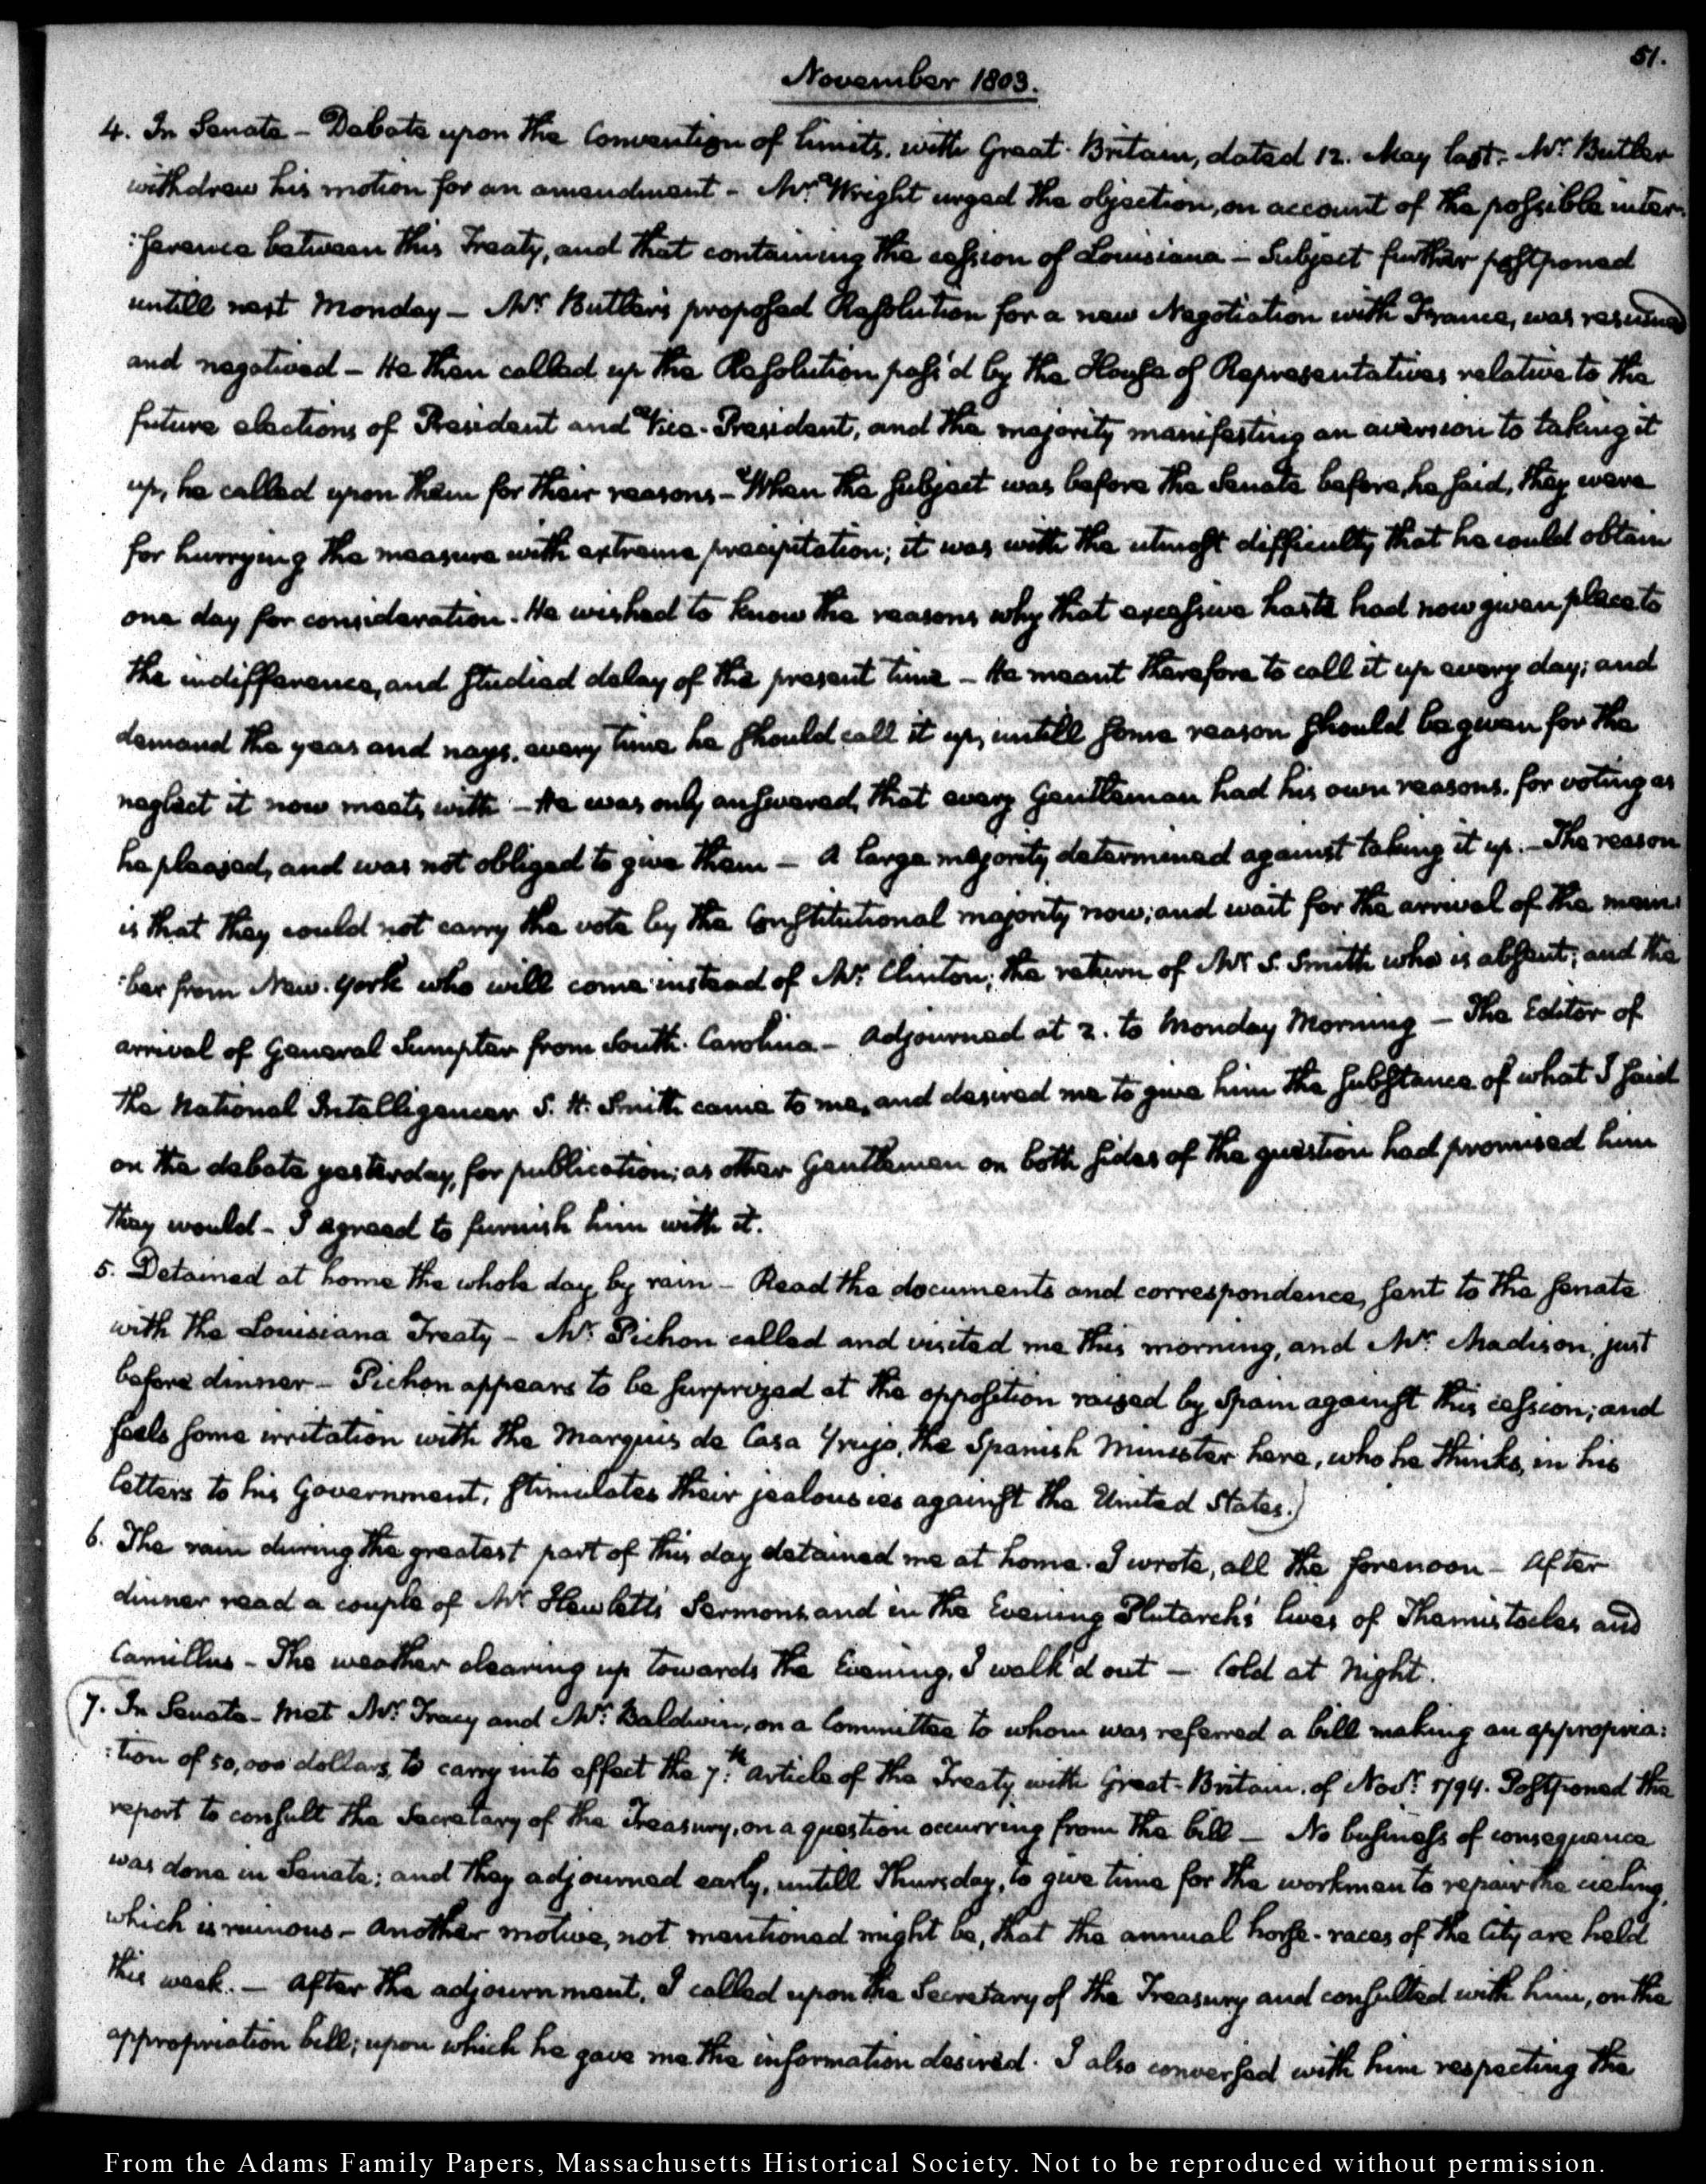 51.
November 1803.
4. In Senate - Debate upon the Convention of limits, with Great-Britain, dated 12. May last. Mr. Butler
withdrew his motion for an amendment - Mr. Wright urged the objection, on account of the possible inter:
:ference between this Treaty, and that containing the cession of Louisiana - Subject further postponed
untill next Monday - Mr. Butler's proposed Resolution for a new Negotiation with France, was resumed
and negatived - He then called up the Resolution pass'd by the House of Representatives relative to the
future elections of President and Vice-President, and the majority manifesting an aversion to taking it
up, he called upon them for their reasons - When the subject was before the Senate before, he said, they were
for hurrying the measure with extreme precipitation; it was with the utmost difficulty that he could obtain
one day for consideration. He wished to know the reasons why that excessive haste had now given place to
the indifference, and studied delay of the present time - He meant therefore to call it up every day; and
demand the yeas and nays, every time he should call it up, untill some reason should be given for the
neglect it now meets with - He was only answered, that every Gentleman had his own reasons, for voting as
he pleased, and was not obliged to give them - A large majority determined against taking it up. - The reason
is that they could not carry the vote by the Constitutional majority now; and wait for the arrival of the mem:
:ber from New-York who will come instead of Mr. Clinton; the return of Mr. S. Smith who is absent; and the
arrival of General Sumpter from South-Carolina - Adjourned at 2. to Monday Morning - The Editor of
the National Intelligencer S. H. Smith came to me, and desired me to give him the substance of what I said
on the debate yesterday, for publication; as other Gentlemen on both sides of the question had promised him
they would - I agreed to furnish him with it.
5. Detained at home the whole day by rain - Read the documents and correspondence, sent to the Senate
with the Louisiana Treaty - Mr. Pichon called and visited me this morning, and Mr. Madison, just
before dinner - Pichon appears to be surprized at the opposition raised by Spain against this cession; and
feels some irritation with the Marquis de Casa Yrujo, the Spanish Minister here, who he thinks, in his
letters to his Government, stimulates their jealousies against the United States.)
6. The rain during the greatest part of this day detained me at home. I wrote, all the forenoon - After
dinner read a couple of Mr. Hewlett's Sermons, and in the Evening Plutarch's lives of Themistocles and
Camillus - The weather clearing up towards the Evening, I walk'd out - Cold at Night.
(7. In Senate - Met Mr. Tracy and Mr. Baldwin, on a Committee to whom was referred a bill making an appropria:
:tion of 50,000 dollars, to carry into effect the 7.th Article of the Treaty with Great-Britain, of Novr. 1794. Postponed the
report to consult the Secretary of the Treasury, on a question occurring from the bill - No business of consequence
was done in Senate; and they adjourned early, untill Thursday, to give time for the workmen to repair the cieling,
which is ruinous - Another motive, not mentioned might be, that the annual horse-races of the City are held
this week. - After the adjournment, I called upon the Secretary of the Treasury and consulted with him, on the
appropriation bill; upon which he gave me the information desired. I also conversed with him respecting the
From the Adams Family Papers, Massachusetts Historical Society. Not to be reproduced without permission.